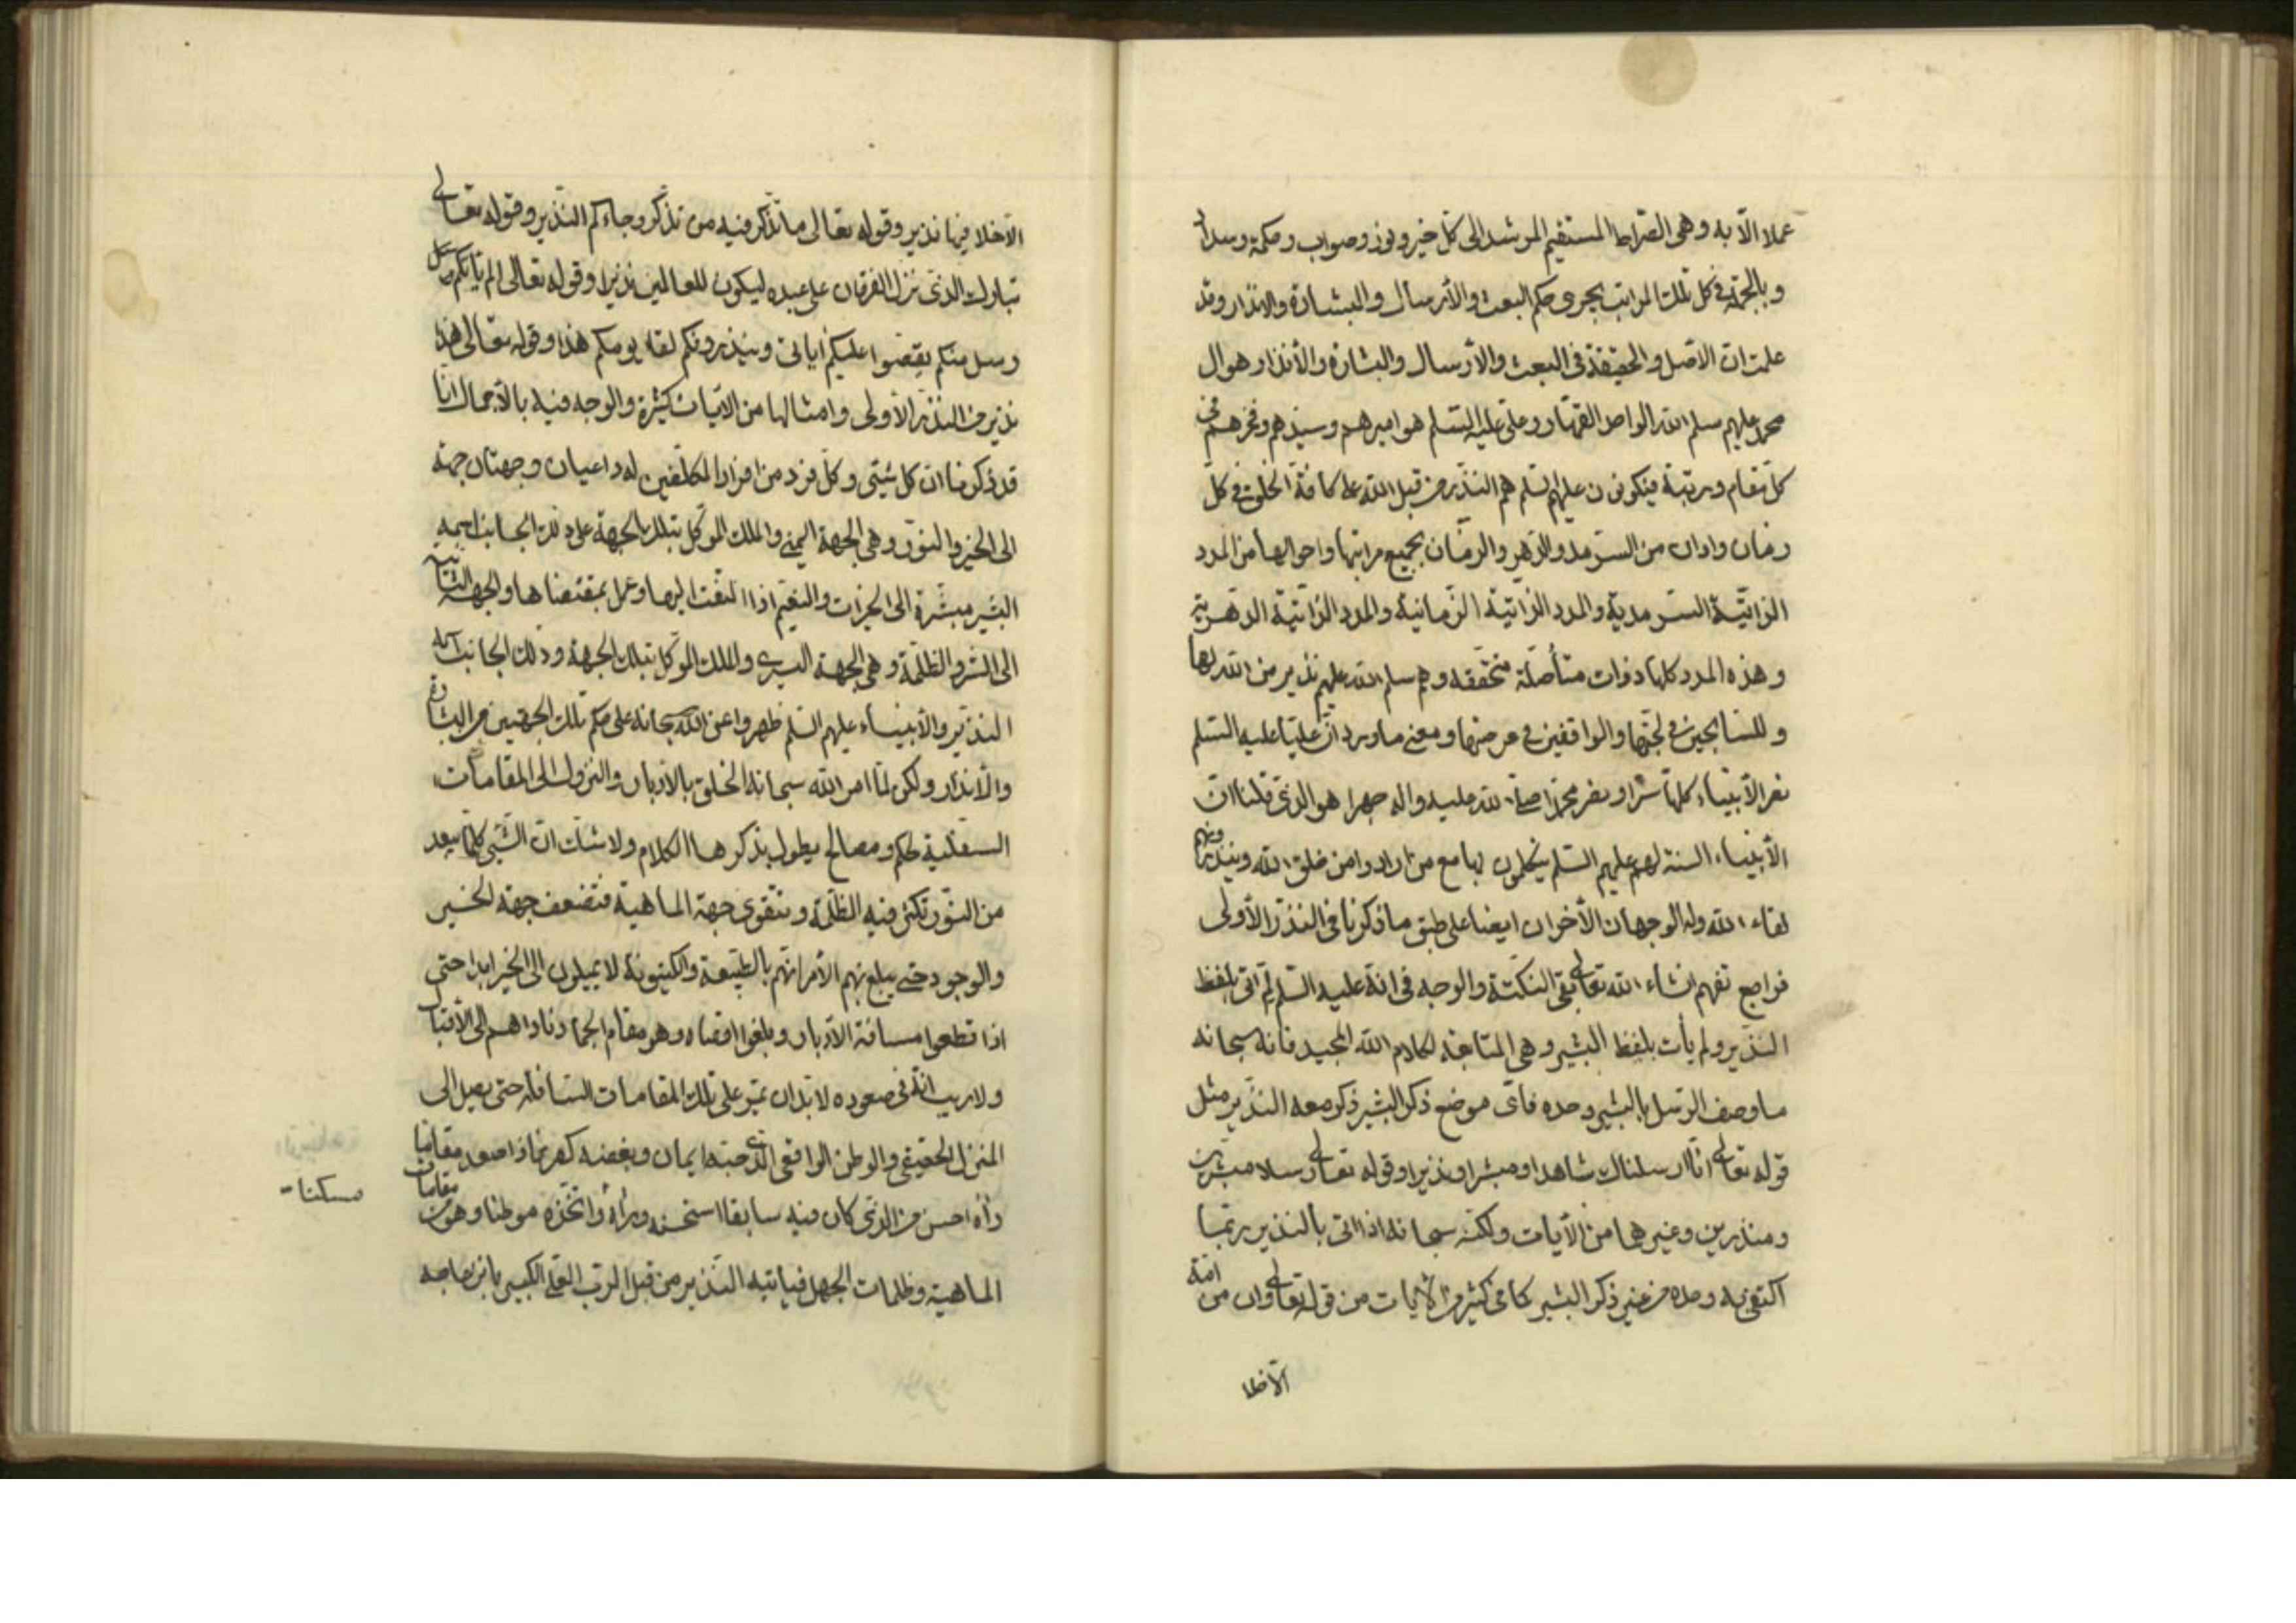 عملا الّا به وهى الصّراط المستقيم المرشد الى كلّ خير ونور وصواب وحكمة وسداد
وبالجملة فى كل تلك المراتب يجرى حكم البعث والأرسال والبشارة والانذار وقد
علمت انّ الاصل والحقيقة فى البعث والأرسال والبشارة والأنذار هو ال
محمّد عليهم سلم الله الواحد القهّار وعلى عليه السّلم هو اميرهم وسيّدهم وفخرهم فى
كلّ مقام ورتبة فيكونون عليهم السّلم هم النّذير من قبل الله على كافة الخلق فى كلّ
زمان واوان من السّرمد والدّهر والزمّان بجميع مراتبها واحوالها من المدد
الذاتيّة السّرمدية والمدد الذاتية الزّمانية والمدد الذاتيّة الدّهريّة
وهذه المدد كلها ذوات متأصّلة متحقّقه وهم سلم الله عليهم نذير من الله لها
وللسّابحين فى لجّتها والواقفين فى عرصتها ومعنى ما ورد انّ عليّا عليه السّلم
نصر الأنبياء كلها سرّا ونصر محمّدا صلى الله عليه واله جهرا هو الذى قلنا انّ
الأنبياء السنة لهم عليهم السّلم يتكلمون بها مع من ارادوا من خلق الله وينذرونهم
لقاء الله وله الوجهان الأخران ايضا على طبق ما ذكرنا فى النّذر الأولى
فراجع تفهم انشاء الله تعالى بقى النّكتة والوجه فى انّه عليه السّلم لم اتى بلفظ
النّذير ولم يأت بلفظ البشير وهى المتابعة لكلام الله المجيد فانّه سبحانه
ما وصف الرّسل بالبشير وحده فاىّ موضع ذكر البشير ذكر معه النّذير مثل
قوله تعالى انّا ارسلناك شاهدا ومبشرا ونذيرا وقوله تعالى رسلا مبشرين
ومنذرين وغيرهما من الأيات ولكنّه سبحانه اذا اتى بالنذير ربّما
اكتفى به وحده من غير ذكر البشير كما فى كثير من الأيات من قوله تعالى وان من امّة
الّا خلا
الّا خلا فيها نذير وقوله تعالى ما يتذكّر فيه من تذكّر وجاءكم النّذير وقوله تعالى
تبارك الذى نزل الفرقان على عبده ليكون للعالمين نذيرا وقوله تعالى الم يأتكم
رسل منكم يقصّوا عليكم اياتى وينذرونكم لقاء يومكم هذا وقوله تعالى هذا
نذير من النّذر الأولى وامثالها من الأيات كثيرة والوجه فيه بالأجمال انّا
قد ذكرنا انّ كل شيئ وكلّ فرد من افراد المكلّفين له داعيان وجهتان جهة
الى الخير والنّور وهى الجهة اليمنى والملك الموكّل بتلك الجهة على ذلك الجانب اسمه
البشير مبشرة الى الخيرات والنعيم اذا التفت اليها وعمل بمقتضاها والجهة الثّانية
الى الشّر والظّلمة وهى الجهة اليسرى والملك الموكّل بتلك الجهة وذلك الجانب اسمه
النّذير والأنبياء عليهم السّلم ظهروا عن الله سبحانه على حكم تلك الجهتين من البشارة
والأنذار ولكن لمّا امر الله سبحانه الخلق بالأدبار والنّزول الى المقامات
السّفلية لحكم ومصالح يطول بذكرها الكلام ولا شكّ انّ الشّيئ كلّما يبعد
من النّور تكثر فيه الظّلمة وتتقوى جهة الماهيّة فتضعف جهة الخير
والوجود حتى يبلغ بهم الأمر انّهم بالطّبيعة والكينونة لا يميلون الى الخير ابدا حتى
اذا قطعوا مسافة الأدبار وبلغوا اقصاه وهو مقام الجماد ناداهم الى الأقبال
ولا ريب انّه فى صعوده لا بدّ ان يمرّ على تلك المقامات السّافلة حتى يصل الى
المنزل الحقيقى والوطن الواقعى الّذى حبّه ايمان وبغضه كفر فاذا صعد مقاما
رأه احسن من الذى كان فيه سابقا استحسنه ورأه واتّخذه موطنا وهو من مقامات
مسكنا
الماهيّة وظلمات الجهل فيأتيه النّذير من قبل الرّب العلىّ الكبير بان هاجه